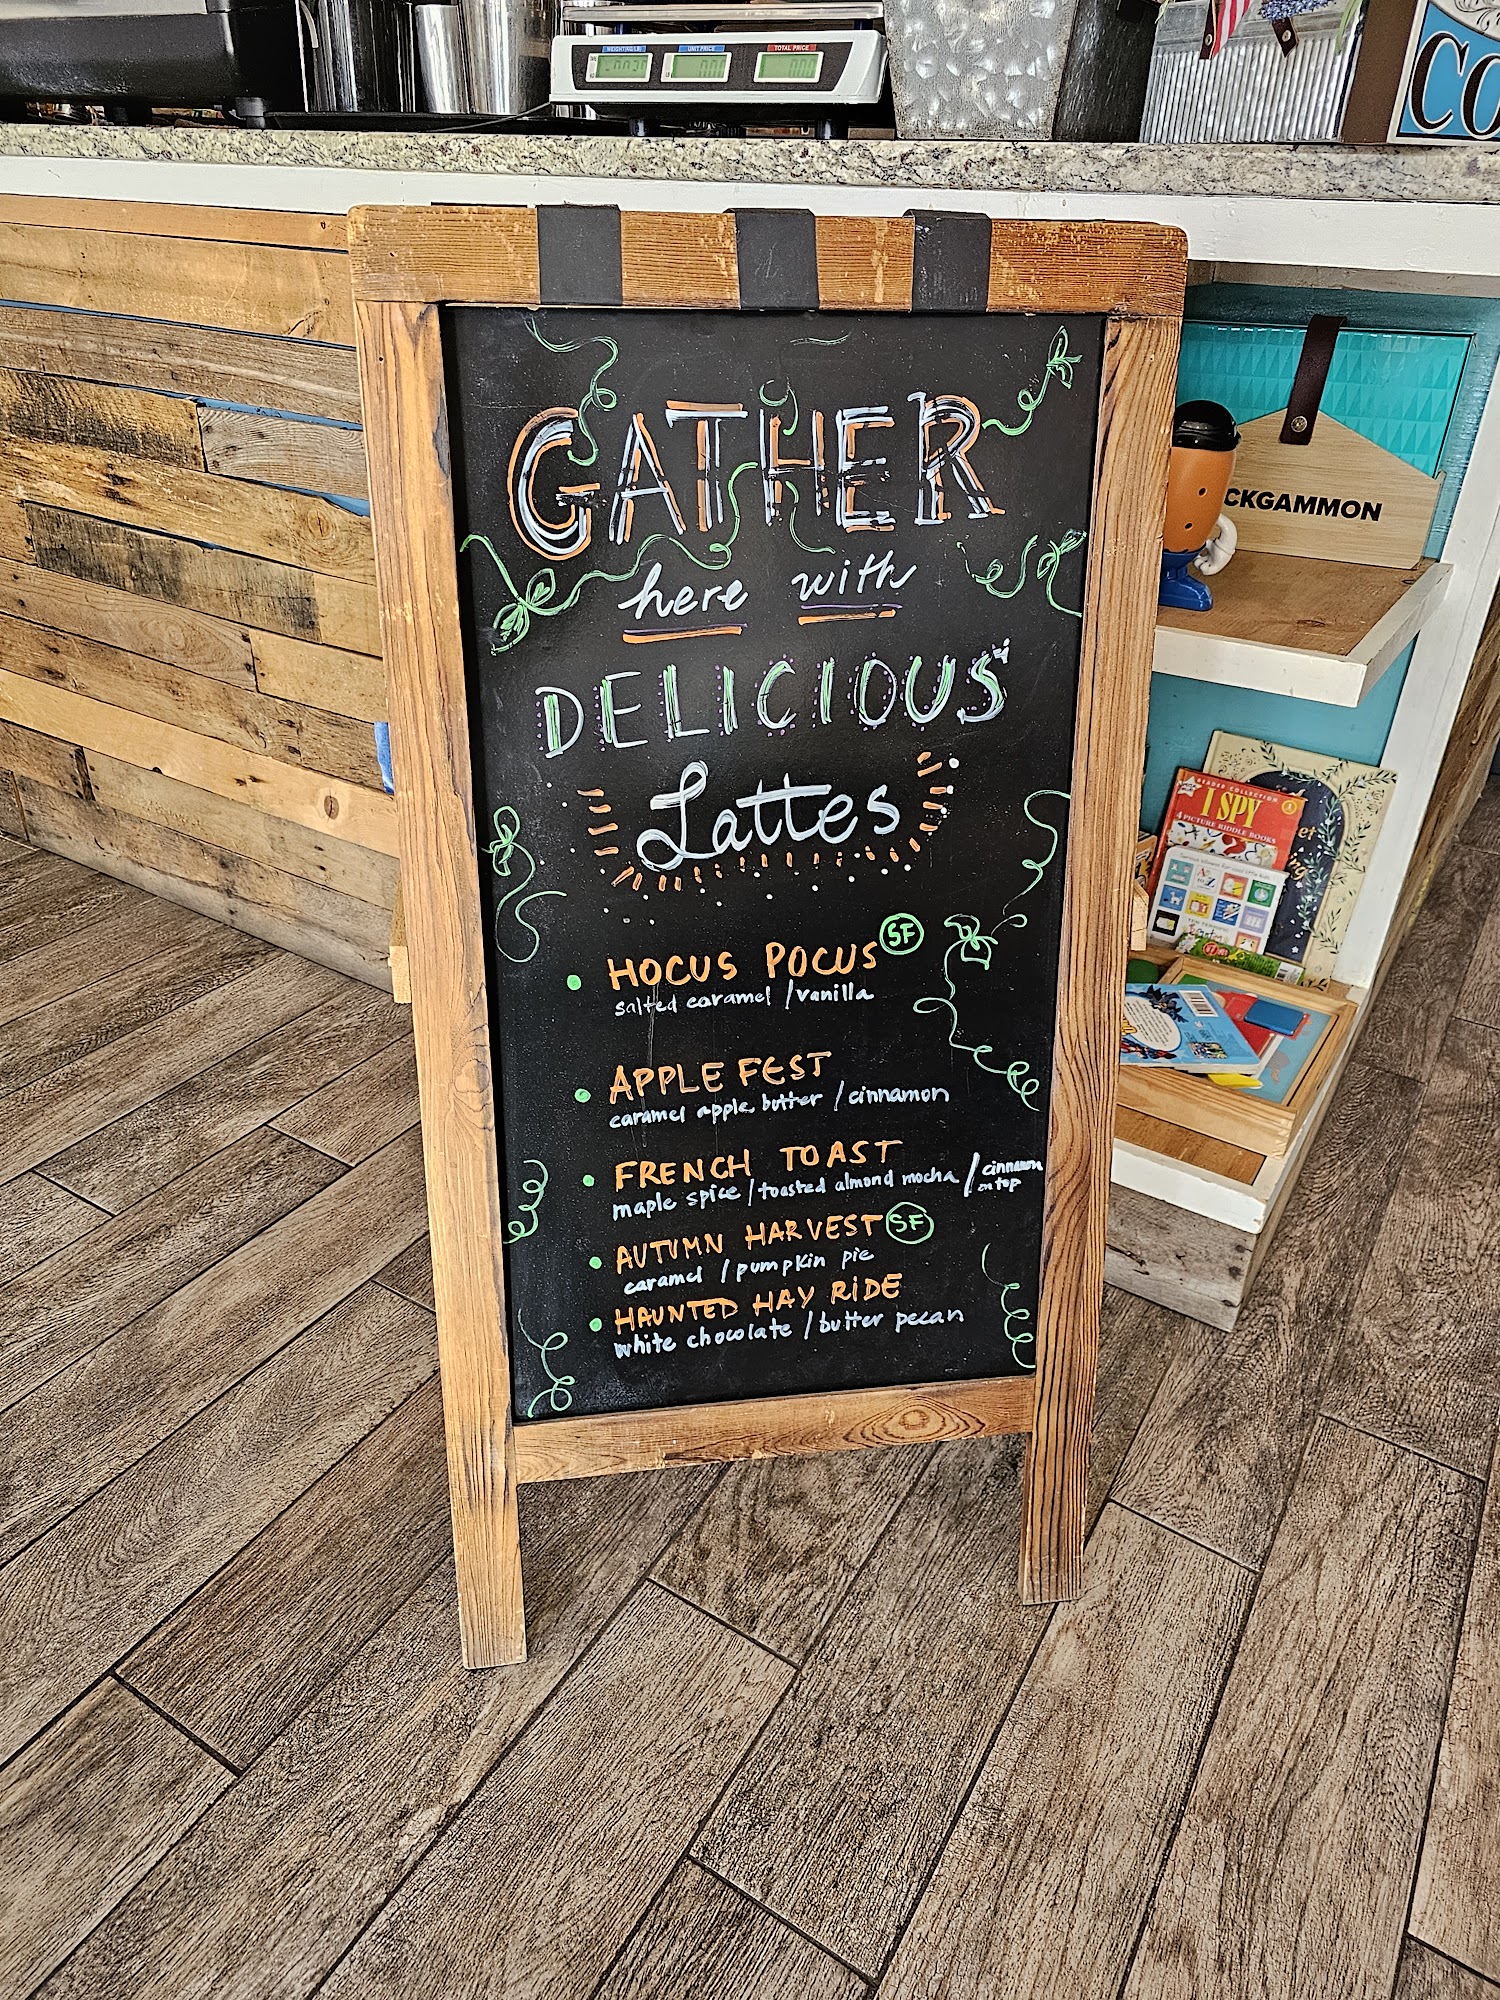 WEIGHT(KG/LB) UNIT PRICE TOTAL PRICE
0.00 0.00
CO
GATHER
here with
DELICIOUS
Lattes
HOCUS POCUS SF
salted caramel / vanilla
APPLE FEST
caramel apple butter / cinnamon
FRENCH TOAST
maple spice / toasted almond mocha / cinnamon
on top
AUTUMN HARVEST SF
caramel / pumpkin pie
HAUNTED HAY RIDE
white chocolate / butter pecan
CKGAMMON
READER COLLECTION
I SPY
4 PICTURE RIDDLE BOOKS